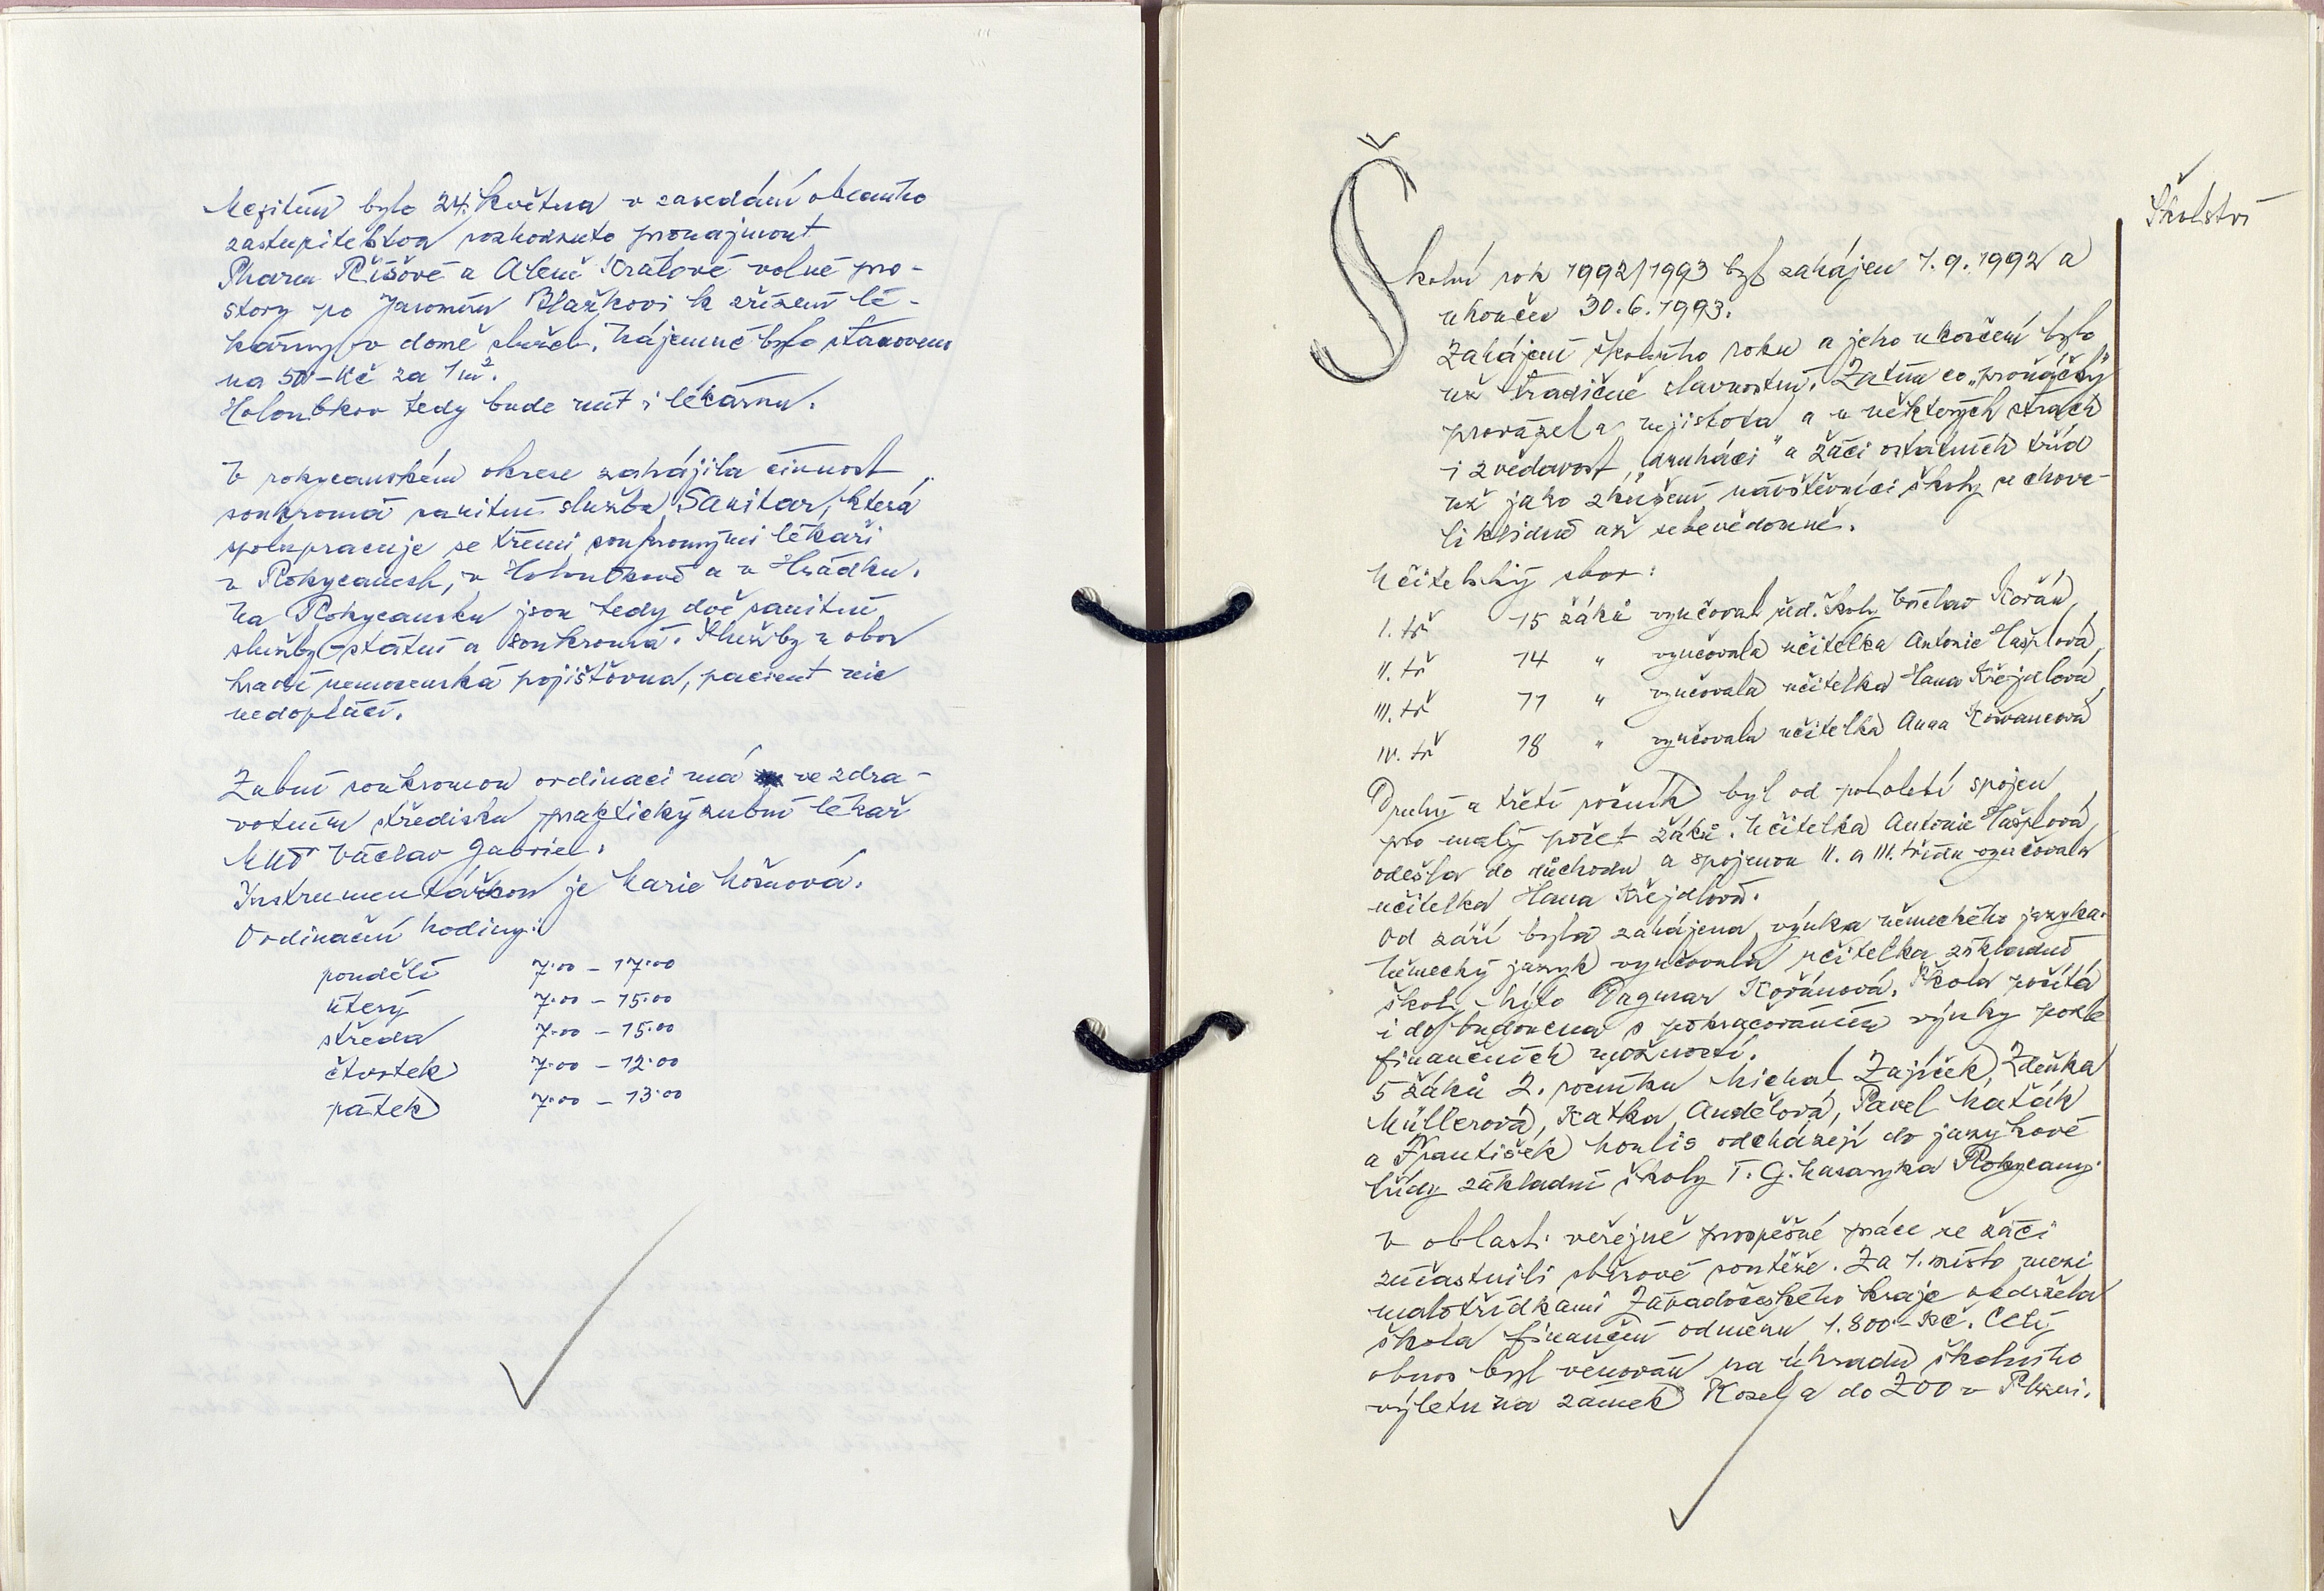 Mezitím bylo 24. května v zasedání obecního
zastupitelstva rozhodnuto pronajmout
Pharm Říšové a Aleně Králové volné pro-
story po Jaromíru Blažkovi k zřízení lé-
kárny v domě služeb. Nájemné bylo stanoveno
na 50.- Kč za 1 m².
Holoubkov tedy bude mít i lékárnu.
V rokycanském okrese zahájila činnost
soukromá sanitní služba Sanitar, která
spolupracuje se třemi soukromými lékaři
v Rokycanech, v Holoubkově a v Hrádku.
Na Rokycansku jsou tedy dvě sanitní
služby - státní a soukromá. Služby u obou
hradí nemocenská pojišťovna, pacient nic
nedoplácí.
Zubní soukromou ordinaci má ve zdra-
votním středisku praktický zubní lékař
MUDr Václav Gabriel.
Instrumentářkou je Marie Mošnová.
Ordinační hodiny:
pondělí 7.00 - 17.00
úterý 7.00 - 15.00
středa 7.00 - 15.00
čtvrtek 7.00 - 12.00
pátek 7.00 - 13.00
Školství
Školní rok 1992/1993 byl zahájen 1.9.1992 a
ukončen 30.6.1993.
Zahájení školního roku a jeho ukončení bylo
už tradičně slavnostní. Zatím co „prvňáčky"
provázela nejistota a u některých strach
i zvědavost, „druháci" a žáci ostatních tříd
už jako zkušení návštěvníci školy se chova-
li klidně až sebevědomně.
Učitelský sbor:
I. tř 15 žáků vyučoval řed. školy Břetislav Kořán,
II. tř 14 " vyučovala učitelka Antonie Hašplová,
III. tř 11 " vyučovala učitelka Hana Křejdlová,
IV. tř 18 " vyučovala učitelka Anna Komancová
Druhý a třetí ročník byl od pololetí spojen
pro malý počet žáků. Učitelka Antonie Hašplová
odešla do důchodu a spojenou II. a III. třídu vyučovala
učitelka Hana Křejdlová.
Od září byla zahájena výuka německého jazyka.
Německý jazyk vyučovala učitelka základní
školy Mýto Dagmar Kořánová. Škola počítá
i do budoucna s pokračováním výuky podle
finančních možností.
5 žáků 2. ročníku Michal Zajíček, Zdeňka
Müllerová, Katka Andělová, Pavel Maták
a František Moulis odcházejí do jazykové
třídy základní školy T. G. Masaryka Rokycany.
V oblasti veřejně prospěšné práce se žáci
zúčastnili sběrové soutěže. Za 1. místo mezi
malotřídkami Západočeského kraje obdržela
škola finanční odměnu 1.800.- Kč. Celý
obnos byl věnován na úhradu školního
výletu na zámek Kozel a do ZOO v Plzni.